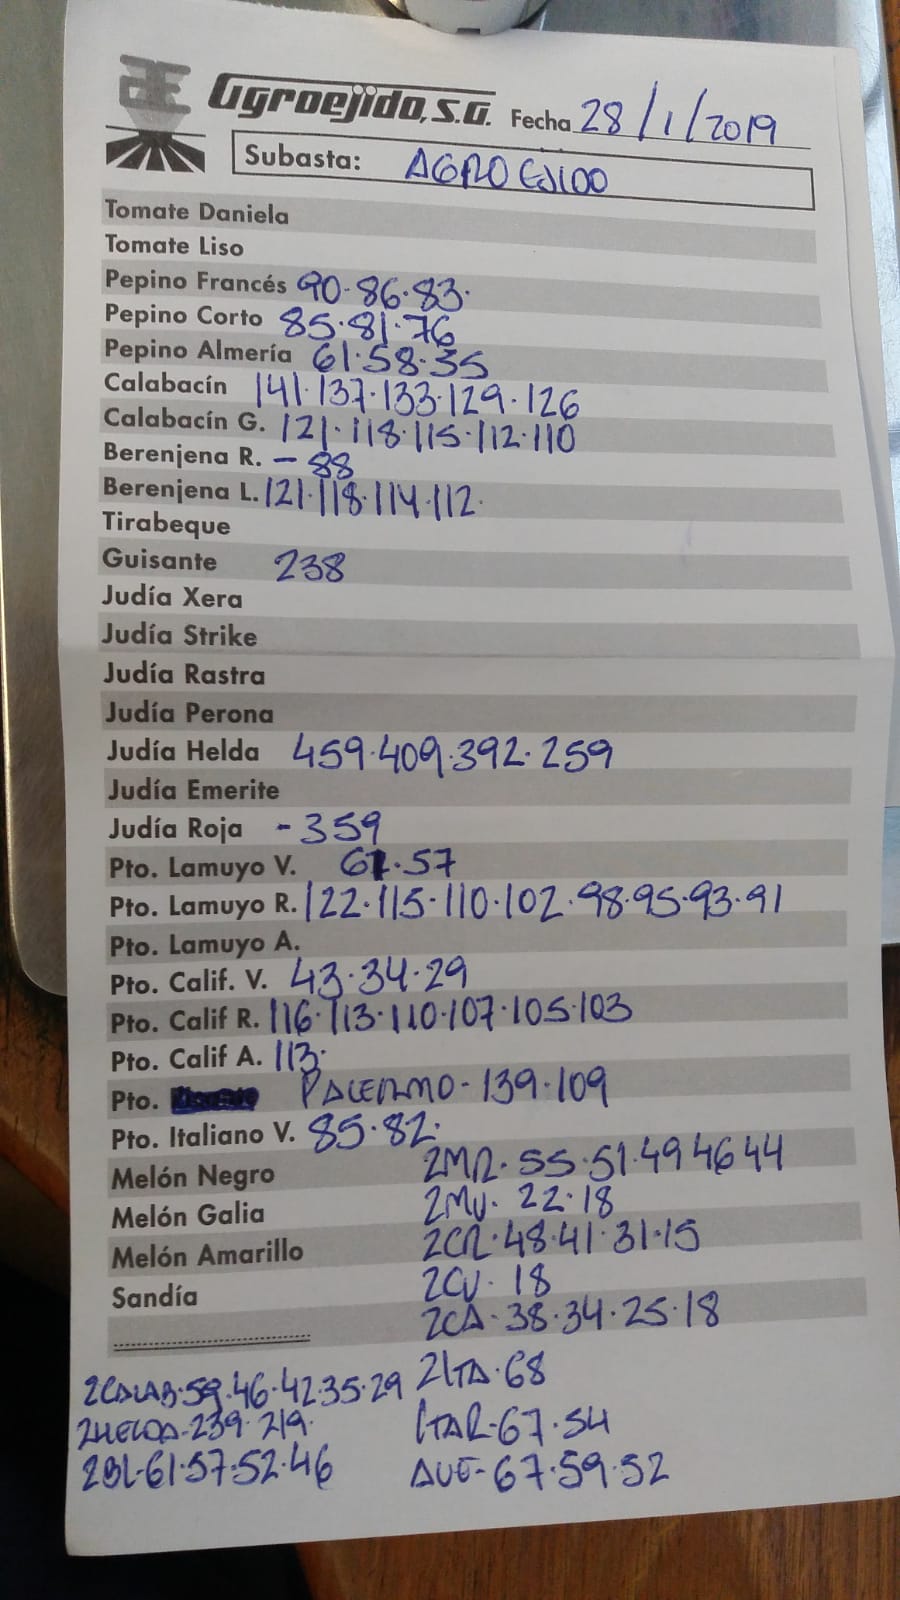 Agroejido, S.A. Fecha 28/1/2019
Subasta: AGROEJIDO
Tomate Daniela
Tomate Liso
Pepino Francés 90·86·83·
Pepino Corto 85·81·76
Pepino Almería 61·58·35
Calabacín 141·137·133·129·126
Calabacín G. 121·118·115·112·110
Berenjena R. – 88
Berenjena L. 121·118·114·112·
Tirabeque
Guisante 238
Judía Xera
Judía Strike
Judía Rastra
Judía Perona
Judía Helda 459·409·392·259
Judía Emerite
Judía Roja - 359
Pto. Lamuyo V. 61·57
Pto. Lamuyo R. 122·115·110·102·98·95·93·91
Pto. Lamuyo A.
Pto. Calif. V. 43·34·29
Pto. Calif R. 116·113·110·107·105·103
Pto. Calif A. 113·
Pto. PALERMO - 139·109
Pto. Italiano V. 85·82·
Melón Negro 2MR· 55·51·49 46 44
Melón Galia 2MV· 22·18
Melón Amarillo 2CR·48·41·31·15
Sandía 2CV· 18
2CA·38·34·25·18
2CALAB·59·46·42·35·29 2ITA·68
2HELDA-239·219· ITAR-67·54
2BL-61·57·52·46 AUE-67·59·52